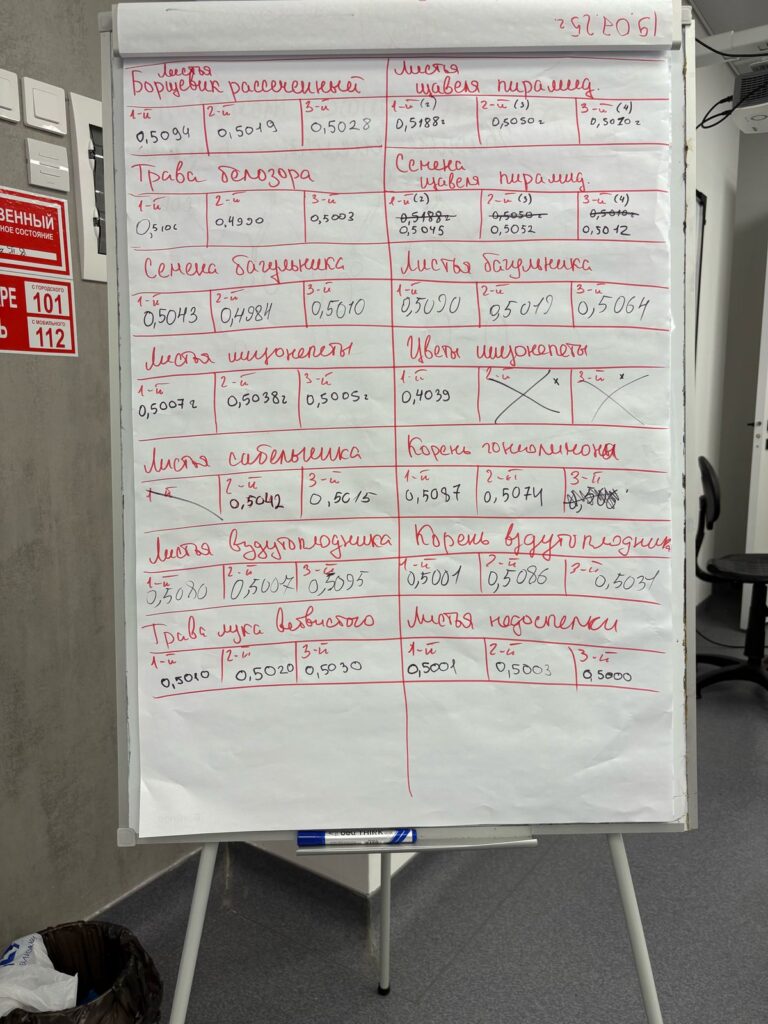 19.07.25г.
Листья
Борщевик рассеченный
1-й 2-й 3-й
0,5094 0,5019 0,5028
Листья
щавеля пирамид.
1-й (2) 2-й (3) 3-й (4)
0,5188г 0,5050г 0,5010г
Трава белозора
1-й 2-й 3-й
0,4990 0,5003
Семена
щавеля пирамид.
1-й (2) 2-й (3) 3-й (4)
0,5188г 0,5050г 0,5010г
0,5045 0,5052 0,5012
Семена багульника
1-й 2-й 3-й
0,5043 0,4984 0,5010
Листья багульника
1-й 2-й 3-й
0,5090 0,5019 0,5064
Листья шизонепеты
1-й 2-й 3-й
0,5007г 0,5038г 0,5005г
Цветы шизонепеты
1-й 2-й 3-й
0,4039
Листья сабельника
1-й 2-й 3-й
0,5042 0,5015
Корень гониолимона
1-й 2-й 3-й
0,5087 0,5074
Листья вздутоплодника
1-й 2-й 3-й
0,5080 0,5007 0,5095
Корень вздутоплодника
1-й 2-й 3-й
0,5001 0,5086 0,5031
Трава лука ветвистого
1-й 2-й 3-й
0,5010 0,5020 0,5030
Листья недоспелки
1-й 2-й 3-й
0,5001 0,5003 0,5000
ВЕННЫЙ
НОЕ СОСТОЯНИЕ
РЕ
Ь
С ГОРОДСКОГО
101
С МОБИЛЬНОГО
112